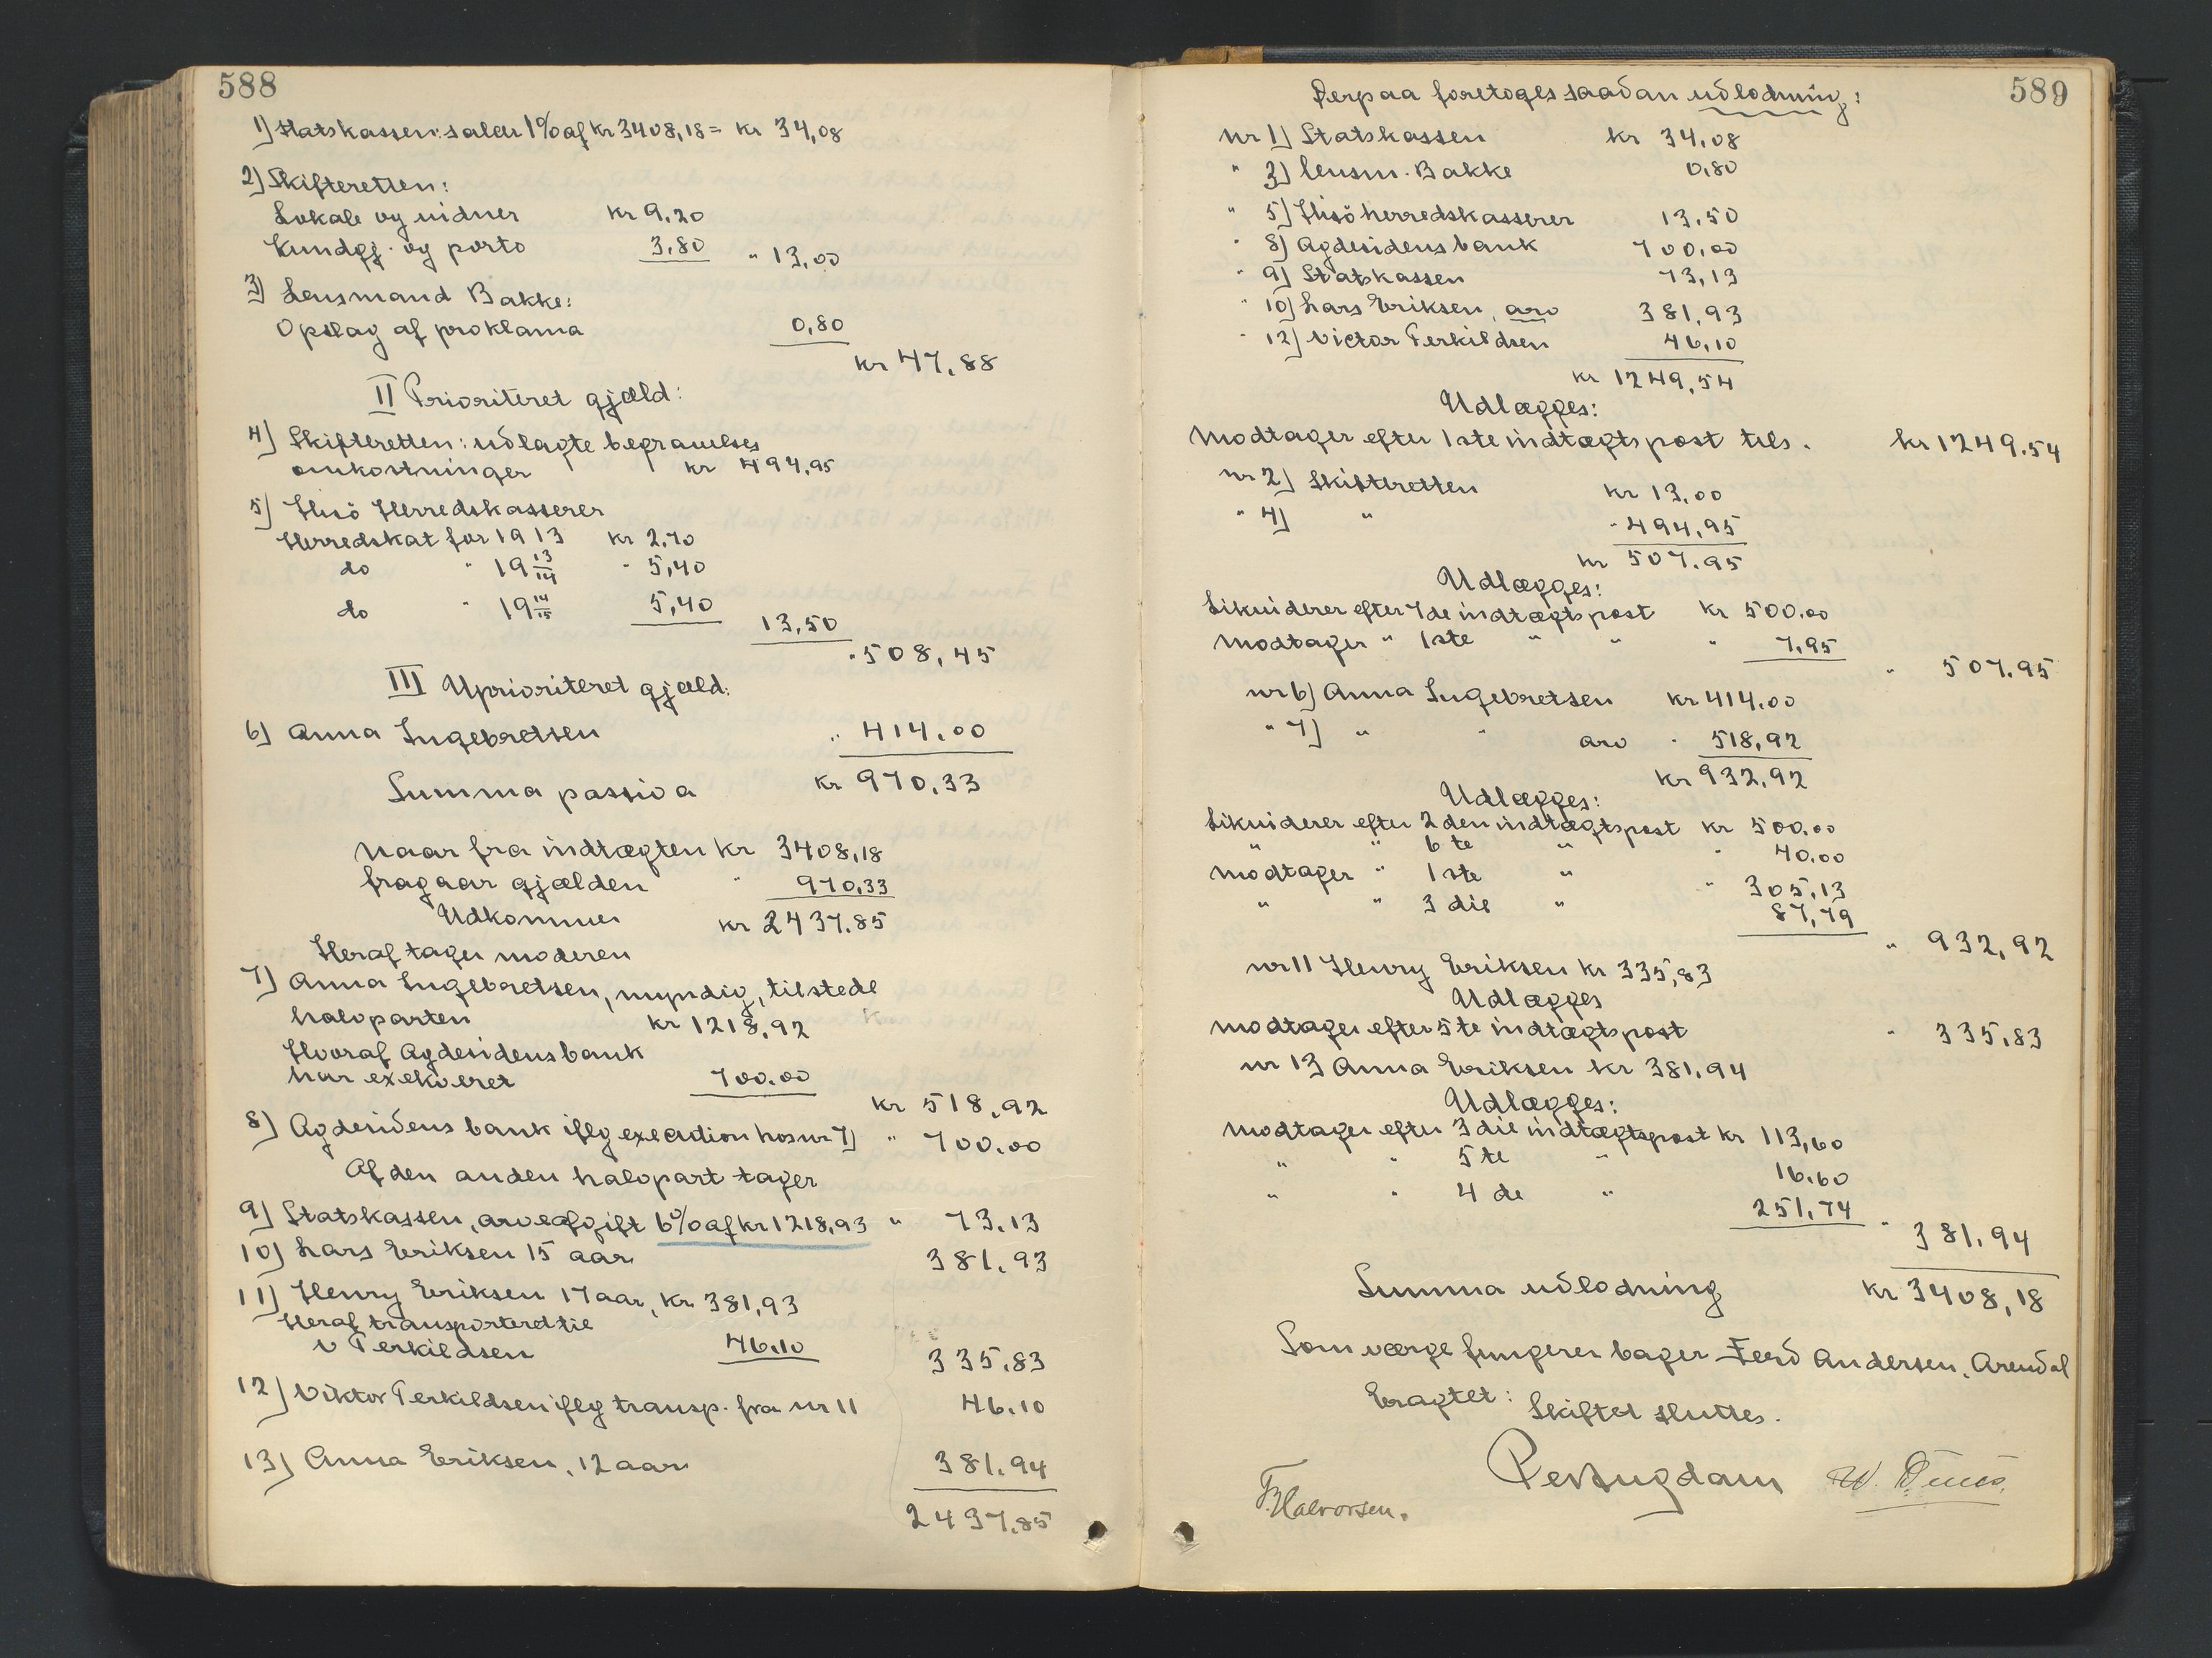 588
1) Statskassen: salær 1% af kr 3408,18 = kr 34,08
2) Skifteretten:
Lokale og vidner kr 9,20
Kundgj. og porto 3,80 " 13,00
3) Lensmand Bakke:
Opslag af proklama 0,80
kr 47,88
II Prioriteret gjæld:
4) Skifteretten: udlagte begravelses
omkostninger kr 494,95
5) Hisö Herredskasserer
Herredskat for 1913 kr 2,70
do " 19 13/14 " 5,40
do " 19 14/15 5,40
13,50
" 508,45
III Uprioriteret gjæld:
6) Anna Ingebretsen " 414.00
Summa passiva kr 970.33
Naar fra indtægten kr 3408,18
fragaar gjælden " 970,33
Udkommer kr 2437.85
Heraf tager moderen
7) Anna Ingebretsen, myndig, tilstede
halvparten kr 1218,92
Hvoraf Agdesidens bank
har exekveret 700.00
kr 518,92
8) Agdesidens bank iflg execution hos nr 7) " 700.00
Af den anden halvpart tager
9) Statskassen, arveafgift 6% af kr 1218,93 " 73.13
10) Lars Eriksen 15 aar 381.93
11) Henry Eriksen 17 aar, kr 381,93
Heraf transporteret til
V Terkildsen 46.10
335.83
12) Viktor Terkildsen iflg transp. fra nr 11 46.10
13) Anna Eriksen, 12 aar 381.94
2437.85
589
Derpaa foretoges saadan udlodning:
nr 1) Statskassen kr 34,08
" 3) Lensm. Bakke 0,80
" 5) Hisö herredskasserer 13.50
" 8) Agdesidens bank 700.00
" 9) Statskassen 73,13
" 10) Lars Eriksen, arv 381,93
" 12) Victor Terkildsen 46,10
kr 1249,54
Udlægges:
Modtager efter 1ste indtægtspost tils. kr 1249.54
nr 2) Skifteretten kr 13,00
" 4) " " 494,95
kr 507.95
Udlægges:
Likviderer efter 7de indtægtspost kr 500.00
Modtager " 1ste " " " 7,95
" 507.95
nr 6) Anna Ingebretsen kr 414.00
" 7) " " arv " 518,92
kr 932,92
Udlægges:
Likviderer efter 2den indtægtspost kr 500.00
" " 6te " " 40.00
Modtager " 1ste " " 305,13
" " 3die " 87,79
" 932,92
nr 11 Henry Eriksen kr 335,83
Udlægges
Modtager efter 5te indtægtspost " 335,83
nr 13 Anna Eriksen kr 381,94
Udlægges:
Modtager efter 3die indtægtspost kr 113,60
" " 5te " 16.60
" " 4de " 251,74
" 381,94
Summa udlodning kr 3408,18
Som værge fungerer bager Ferd Andersen, Arendal
Eragtet: Skiftet sluttes.
Per Augdam
Halvorsen.